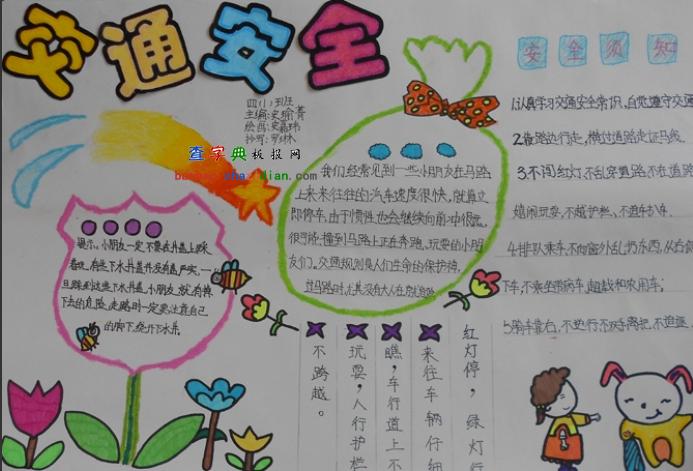 交通安全
四(1)班
查字典板报网
安全须知
1.认真学习交通安全常识,自觉遵守交通
2.靠路边行走,横过道路走斑马线
3.不闯红灯,不乱穿道路,不在道路
嬉闹玩耍,不越护栏、不追车扒车
4.排队乘车,不向窗外乱扔东西,从右侧
下车,不乘坐带病车,超载和农用车;
我们经常见到一些小朋友在马路
上来来往往的汽车速度很快,就算立
即停车,由于惯性也会继续向前冲很远,
很可能撞到马路上正在奔跑、玩耍的小朋
友们。交通规则是人们生命的保护神,
提示:小朋友一定不要在井盖上踩
着玩,有些下水井盖并没有盖严实,一
旦踩到这些下水井盖,小朋友就有掉
下去的危险,走路时一定要注意自己
的脚下,绕开下水井.
红灯停,绿灯行
来往车辆仔细
瞧,车行道上不
玩耍,人行护栏
不跨越。